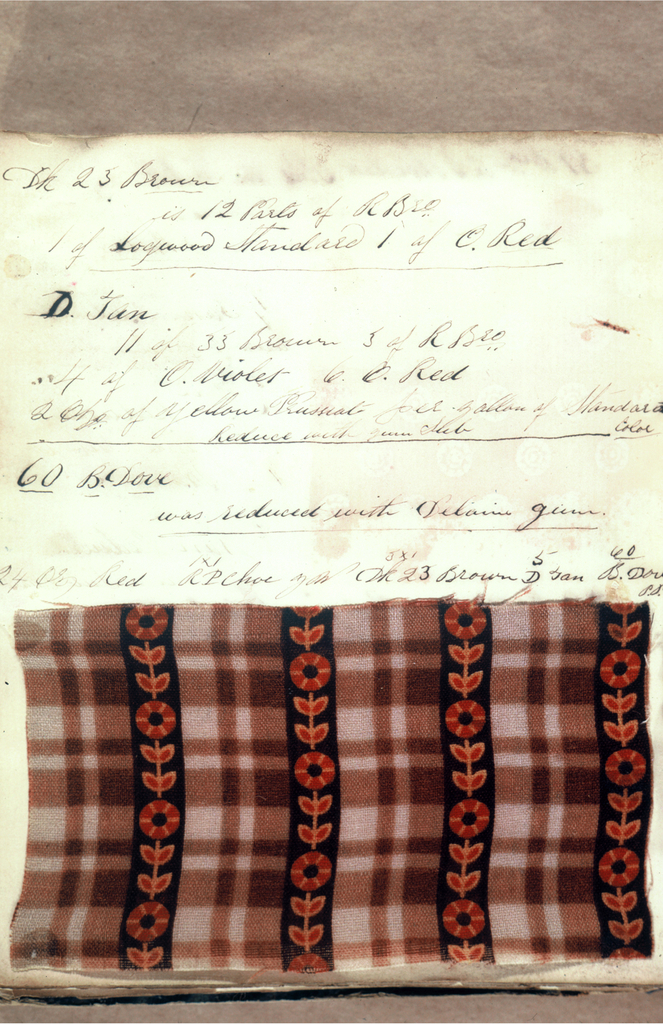 Dk 23 Brown
is 12 Parts of R Bro.
1 of Logwood Standard 1 of O. Red
D. Tan
11 of 33 Brown 3 of R Bro.
4 of O. Violet 6 O. Red
2 of Yellow Prussiate per gallon of Standard
Reduce with gum Sub Color
60 B. Dove
was reduced with Delaine gum.
24 Red Dk 23 Brown 5 D Tan 60 B. Dove